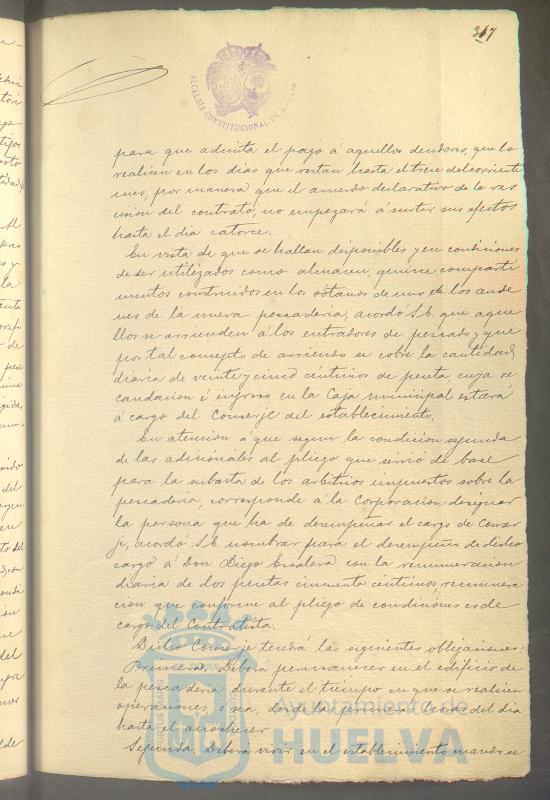 367
ALCALDÍA CONSTITUCIONAL DE
para que admita el pago á aquellos deudores, que lo
realicen en los dias que restan hasta el trece del corriente
mes, por manera que el acuerdo declarativo de la res
cision del contrato, no empezará á surtir sus efectos
hasta el dia catorce.
En vista de que se hallan disponibles y en condiciones
de ser utilizados como almacen, quince comparti
mentos construidos en los sótanos de uno de los ande
nes de la nueva pescadería, acordó S.E. que aque
llos se arrienden á los entradores de pescado, y que
por tal concepto de arriendo se cobre la cantidad
diaria de veinte y cinco céntimos de peseta cuya re
caudacion é ingreso en la Caja municipal estará
á cargo del Conserje del establecimiento.
En atencion a que segun la condicion segunda
de las adicionales al pliego que sirvió de base
para la subasta de los arbitrios impuestos sobre la
pescadería, corresponde á la Corporacion designar
la persona que ha de desempeñar el cargo de Conser
je, acordó S.E. nombrar para el desempeño de dicho
cargo á Don Diego Escalera con la remuneracion
diaria de dos pesetas cincuenta céntimos remunera
cion que conforme al pliego de condiciones es de
cargo del Contratista.
Dicho Conserje tendrá las siguientes obligaciones:
Primera. Deberá permanecer en el edificio de
la pescadería durante el tiempo en que se realicen
operaciones, ó sea, desde las primeras horas del dia
hasta el anochecer
Segunda. Deberá vivir en el establecimiento cuando se
Ayuntamiento de
HUELVA